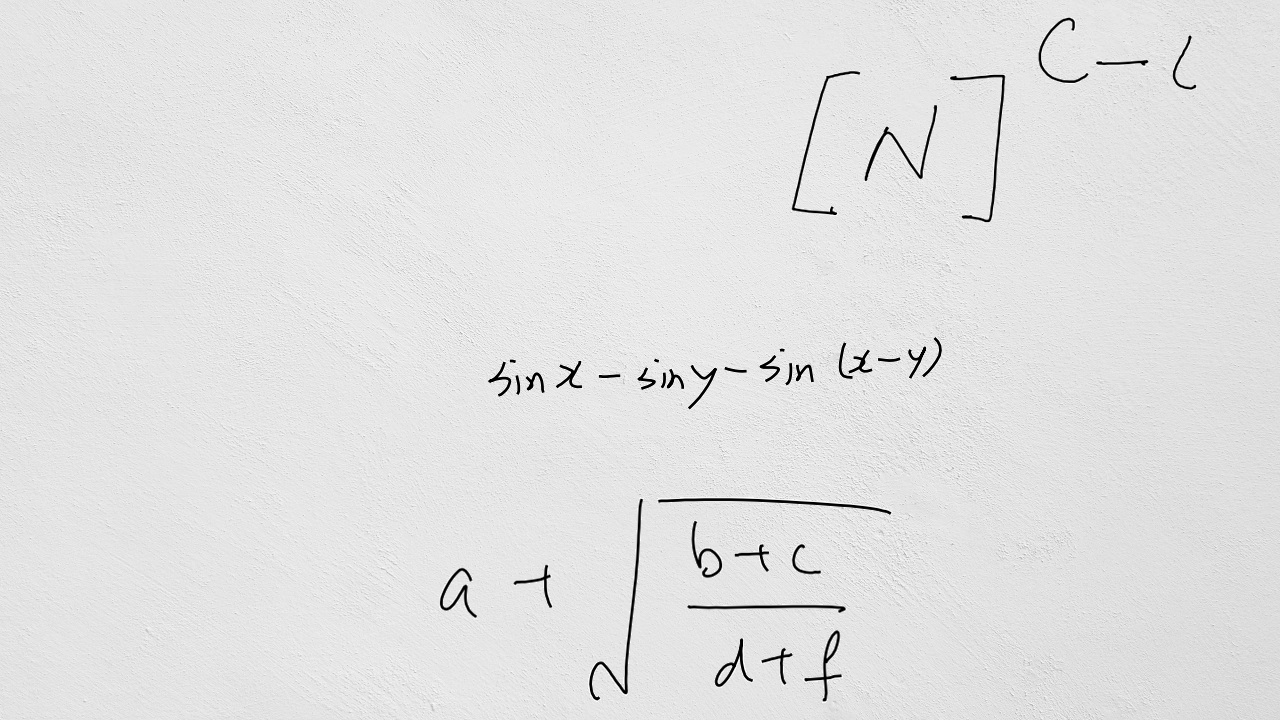 [N]^{C-l}
sin x - sin y - sin (x-y)
a + \sqrt{\frac{b+c}{d+f}}